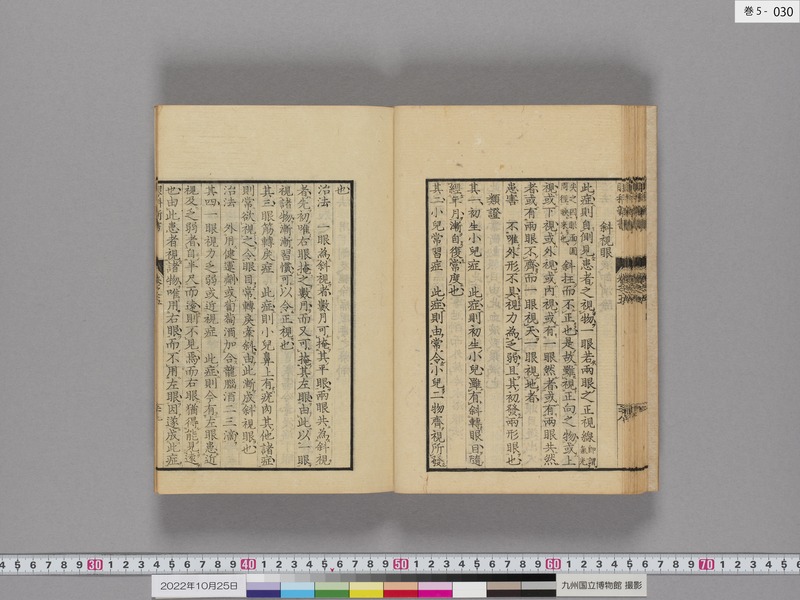 巻5 - 030
斜視眼
此症則自側見患者之視物一眼若兩眼之正視線
斜狂而不正也是故難視正向之物或上
視或下視或外視或内視或有一眼然者或有兩眼共然
者或有兩眼不齊而一眼視天一眼視地者
患害 不唯外形不具視力為乏弱且其初發兩形眼也
類證
其一初生小兒症 此症則初生小兒雖有斜轉眼目隨
經年月漸自復常度也
其二小兒常習症 此症則由常令小兒二物齊視所發
也
治法 一眼為斜視者數月可掩其半眼兩眼共為斜視
者先初唯右眼掩之數月而又可掩其左眼由此以一眼
視諸物漸漸習慣可以令正視也
其三眼筋轉戾症 此症則小兒鼻上有疣肉其他諸症
則常欲視之令眼目常轉戾牽斜由此漸成斜視眼也
治法 外用健運劑或葡萄酒加合龍腦酒二三滴
其四一眼視力乏弱或近視症 此症則令有左眼患近
視及乏弱者自半尺而遠則不見焉而右眼猶得能見遠
也由此患者視諸物唯用右眼而不用左眼因遂成此症
30 40 50 60 70
2022年10月25日
九州国立博物館 撮影